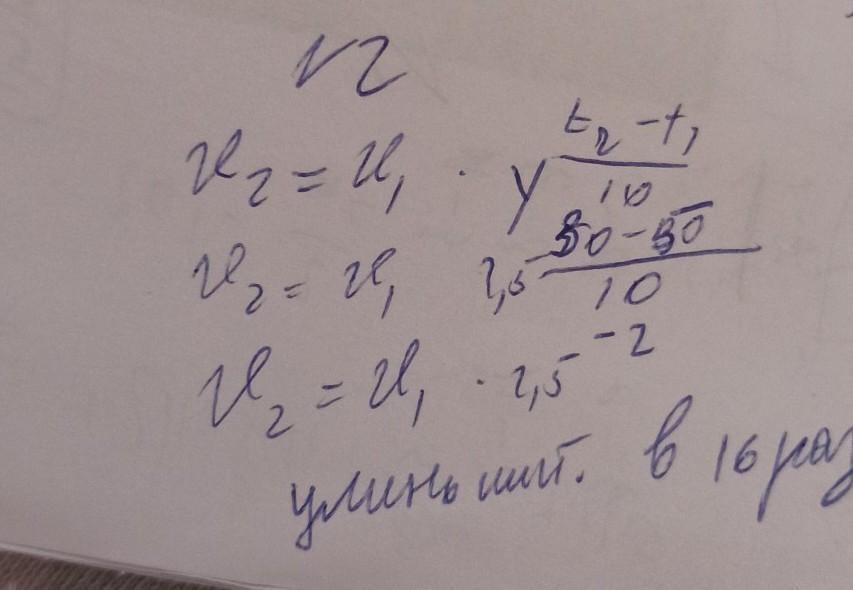 √2
v₂ = v₁ · γ^((t₂ - t₁)/10)
v₂ = v₁ 2,5^((30-50)/10)
v₂ = v₁ · 2,5⁻²
уменьшит. в 16 раз